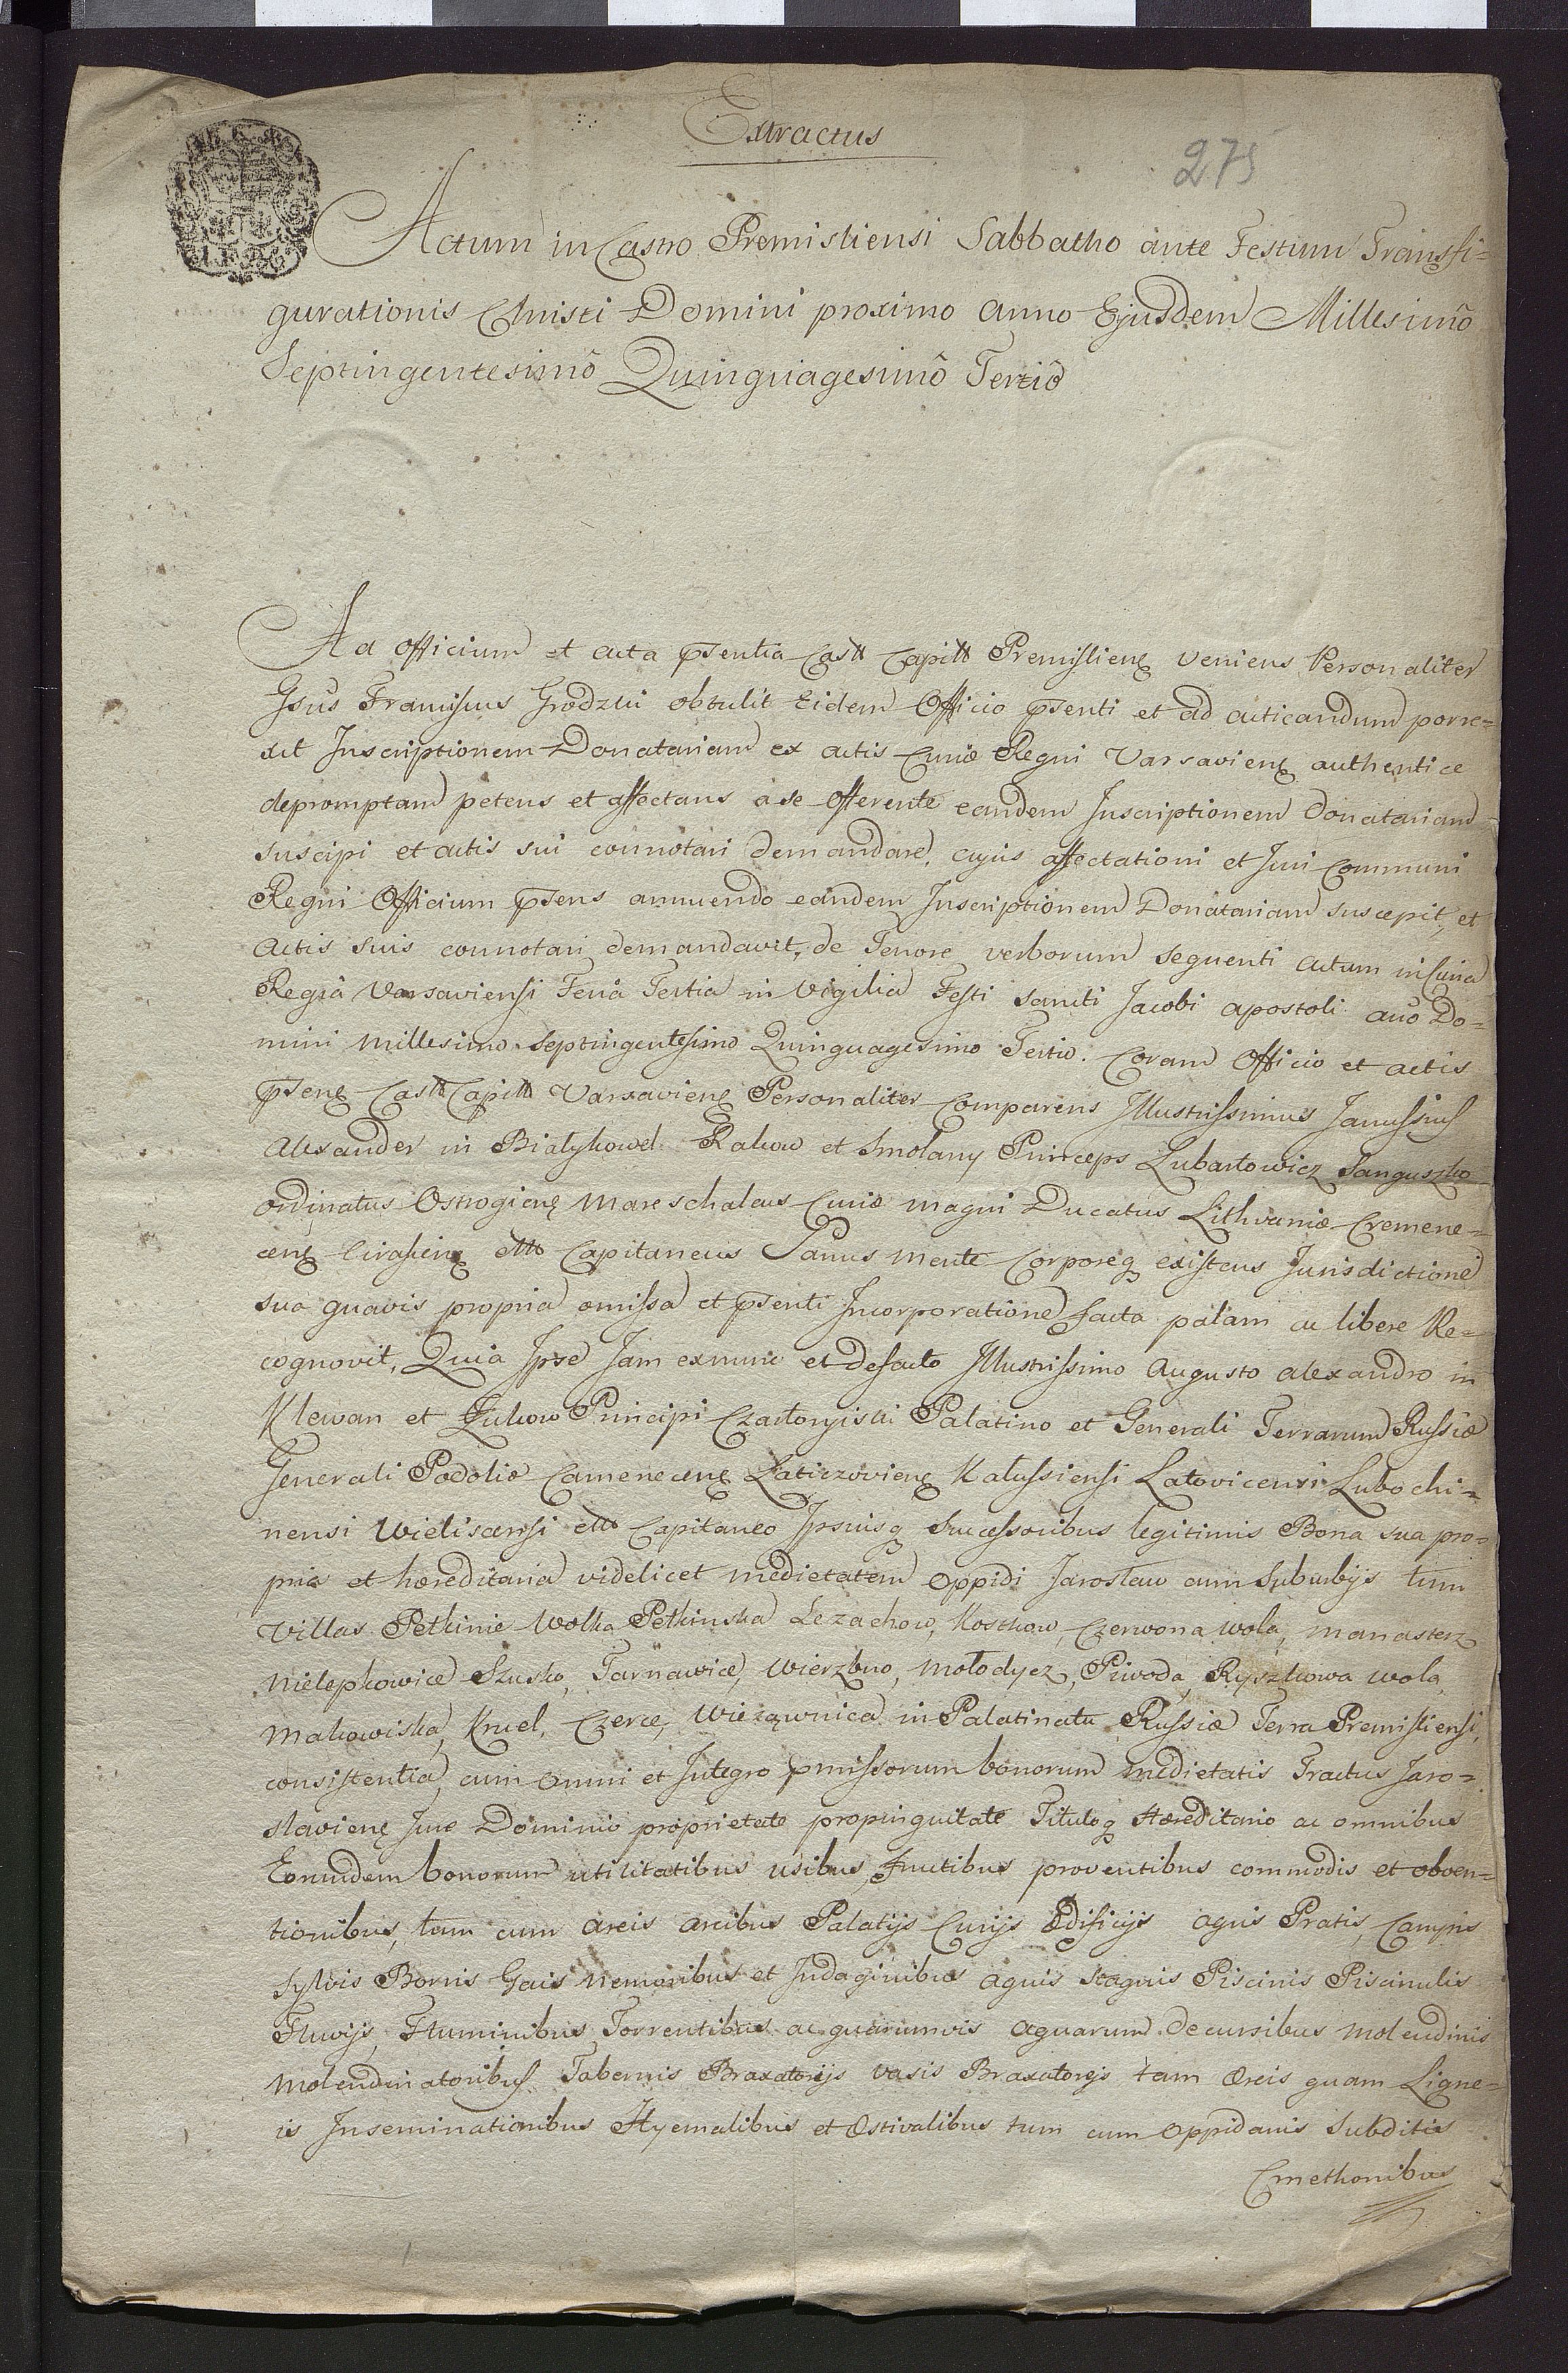 Extractus
275
Actum in Castro Premisliensi Sabbatho ante Festum Transfi=
gurationis Christi Domini proximo Anno Ejusdem Millesimô
Septingentesimô Quinquagesimô Tertiô
Ad officium et acta pñsentia Castr Capitt Premisliens veniens Personaliter
Gsūs Franciscus Grodzki obtulit Eidem Officio pñsenti et ad acticandum porre=
xit Inscriptionem Donatariam ex actis Curiæ Regni Varsaviens authentice
depromptam petens et affectans a se offerente eandem Inscriptionem Donatariam
suscipi et actis sui connotari demandare, cujus affectationi et Juri Communi
Regni Officium pñsens annuendo eandem Inscriptionem Donatariam suscepit, et
Actis suis connotari demandavit, de Tenore verborum seguenti Actum in Curia
Regia Varsaviensi Feria Tertia in Vigilia Festi Sancti Jacobi Apostoli año Do=
mini Millesimo Septingentesimo Quinquagesimo Tertio. Coram Officio et actis
pñsens Castr Capitt Varsaviens Personaliter Comparens Illustrissimus Janussius
Alexander in Białykowel Rakow et Smolany Princeps Lubartowicz Sanguszko
ordinatus Ostrogiens Mareschalcus Curiæ magni Ducatus Lithvaniæ Cremene=
cens Cirasiens ettc Capitaneus Sanus mente Corporeq existens Jurisdictione
sua quavis propria omissa et pñsenti Incorporatione facta palam ac libere Re=
cognovit, Quia Ipse Jam exnunc et defacto Illustrissimo Augusto Alexandro in
Klewan et Zukow Principi Czartoryiski Palatino et Generali Terrarum Russiæ
Generali Podoliæ Camenecens Laticzoviens Kalussiensi Latovicensi Lubochi=
nensi Wieliscensi ettc Capitaneo Ipsiusq Successoribus legitimis Bona sua pro=
pria et hæreditaria videlicet medietatem Oppidi Jaroslaw cum Suburbijs tum
Villas Pełkinie Wolka Pełkinska Lezachow, Kostkow, Czerwona wola, Manasterz
Nielepkowice Szusko, Tarnawice, Wierzbno, Mołodycz, Piwoda, Ryszkowa wola,
Makowiska, Kruel, Czerce, Wiezawnica in Palatinatu Russiæ Terra Premisliensi,
consistentia, cum omni et Integro pmissorum bonorum medietatis Tractus Jaro=
slaviens Jure Dominio proprietate propinquitate Tituloq Hæreditario ac omnibus
Eorumdem bonorum utilitatibus usibus, Fructibus proventibus commodis et obven=
tionibus, tam cum areis arcibus Palatijs Curijs Ædificijs agris Pratis, Campis
Sylvis Borris Gais Nemoribus et Indaginibus aquis Stagnis Piscinis Piscinulis
Fluvijs, Fluminibus Torrentibus ac quarumvis aquarum decursibus molendinis
Molendinatoribus Tabernis Braxatorijs vasis Braxatorijs tam Æreis quam Ligne=
is Inseminationibus Hyemalibus et Æstivalibus tum cum Oppidanis Subditis
Cmethonibus